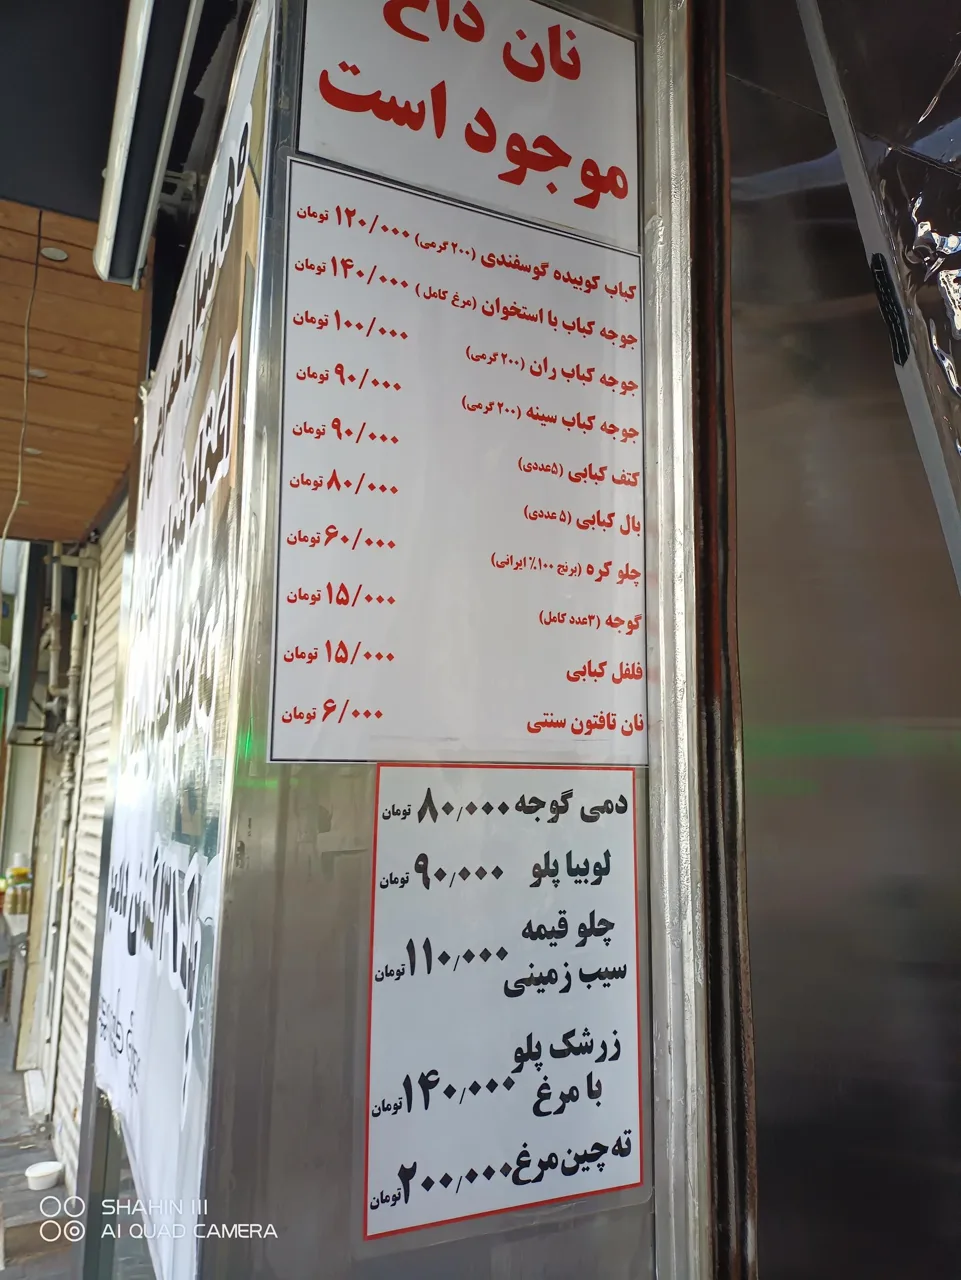 نان داغ
موجود است
کباب کوبیده گوسفندی (۲۰۰ گرمی) ۱۲۰/۰۰۰ تومان
جوجه کباب با استخوان (مرغ کامل) ۱۴۰/۰۰۰ تومان
جوجه کباب ران (۲۰۰ گرمی) ۱۰۰/۰۰۰ تومان
جوجه کباب سینه (۲۰۰ گرمی) ۹۰/۰۰۰ تومان
کتف کبابی (۵عددی) ۹۰/۰۰۰ تومان
بال کبابی (۵ عددی) ۸۰/۰۰۰ تومان
چلو کره (برنج ۱۰۰٪ ایرانی) ۶۰/۰۰۰ تومان
گوجه (۳عدد کامل) ۱۵/۰۰۰ تومان
فلفل کبابی ۱۵/۰۰۰ تومان
نان تافتون سنتی ۶/۰۰۰ تومان
دمی گوجه ۸۰٫۰۰۰ تومان
لوبیا پلو ۹۰٫۰۰۰ تومان
چلو قیمه
سیب زمینی ۱۱۰٫۰۰۰ تومان
زرشک پلو
با مرغ ۱۴۰٫۰۰۰ تومان
ته چین مرغ ۲۰۰٫۰۰۰ تومان
SHAHIN III
AI QUAD CAMERA